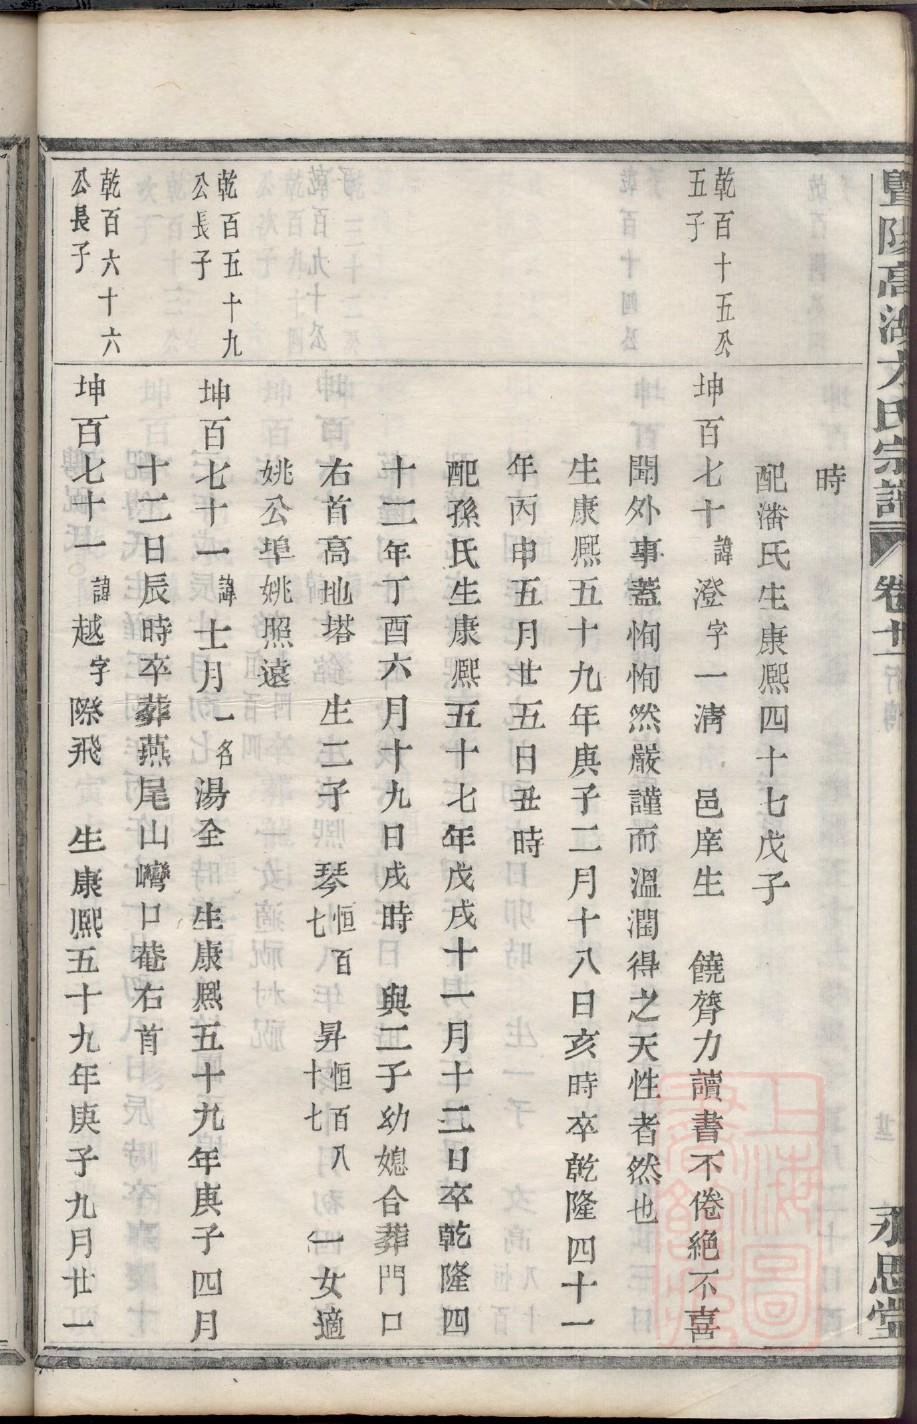 暨陽高湖方氏宗譜
卷十二
永思堂
時
配潘氏生康熙四十七戊子
乾百十五公
五子
坤百七十諱澄字一清 邑庠生 饒膂力讀書不倦絕不喜
聞外事蓋恂恂然嚴謹而溫潤得之天性者然也
生康熙五十九年庚子二月十八日亥時卒乾隆四十一
年丙申五月廿五日丑時
配孫氏生康熙五十七年戊戌十一月十二日卒乾隆四
十二年丁酉六月十九日戌時 與二子幼媳合葬門口
右首高地塔 生二子 琴恒百七 昇恒百八十七 一女適
姚公埠姚照遠
乾百五十九
公長子
坤百七十一諱士月一名湯全 生康熙五十九年庚子四月
十二日辰時卒葬燕尾山嶴口菴右首
乾百六十六
公長子
坤百七十一諱越字際飛 生康熙五十九年庚子九月廿一